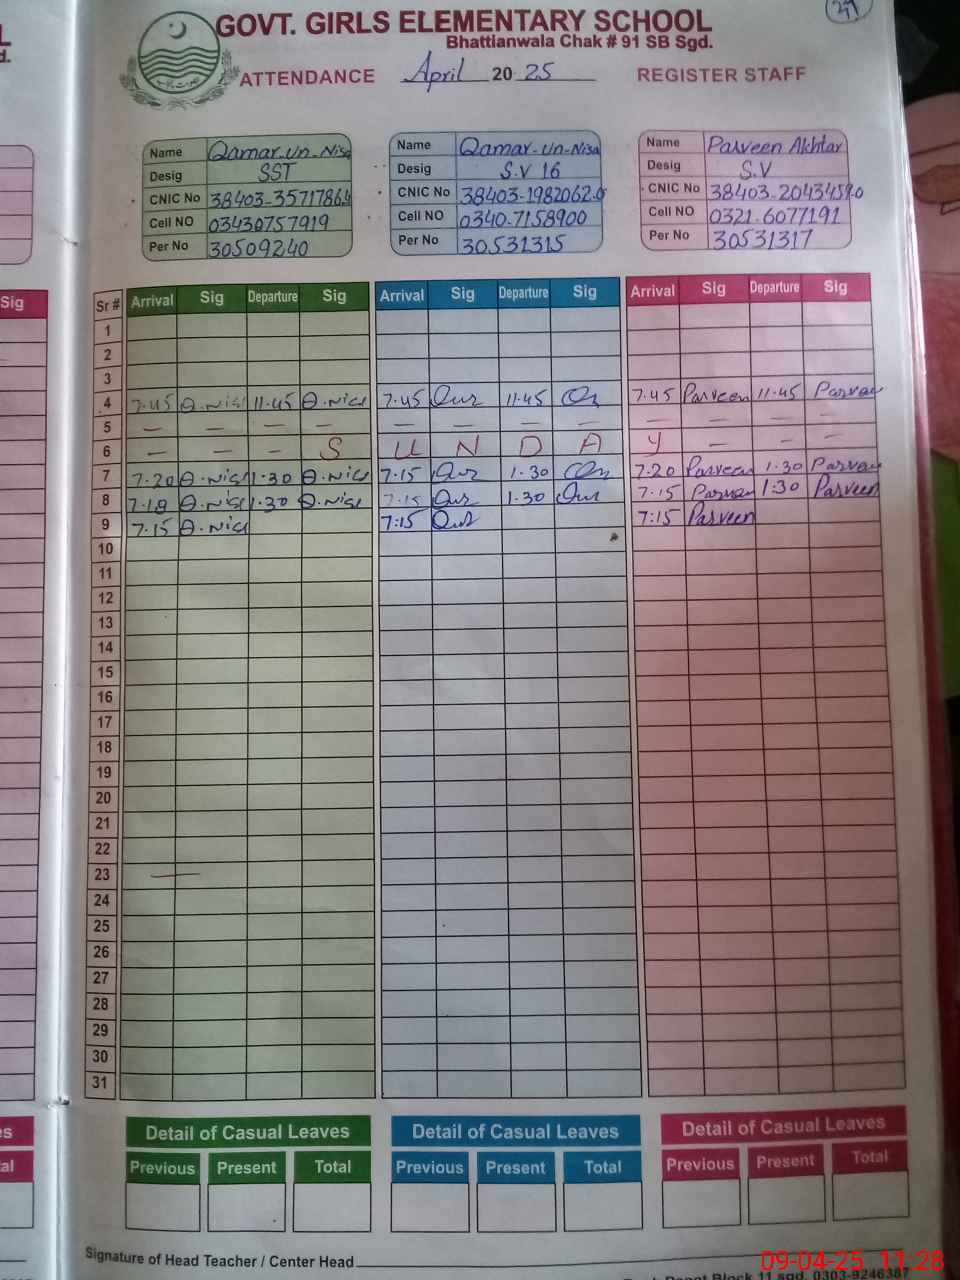 GOVT. GIRLS ELEMENTARY SCHOOL
Bhattianwala Chak # 91 SB Sgd.
ATTENDANCE April 2025 REGISTER STAFF
Name Qamar-Un-Nisa
Desig SST
CNIC No 38403-3571786.4
Cell NO 03430757919
Per No 30509240
Name Qamar-Un-Nisa
Desig S.V 16
CNIC No 38403-1982062.0
Cell NO 0340-7158900
Per No 30531315
Name Parveen Akhtar
Desig S.V
CNIC No 38403-2043459.0
Cell NO 0321-6077191
Per No 30531317
Sr # Arrival Sig Departure Sig Arrival Sig Departure Sig Arrival Sig Departure Sig
1
2
3
4 7.45 Q.Nisa 11.45 Q.Nisa 7.45 11.45 7.45 Parveen 11.45 Parveen
5 — — — — — — — — — — — —
6 — — — S U N D A Y — — —
7 7.20 Q.Nisa 1.30 Q.Nisa 7.15 1.30 7.20 Parveen 1.30 Parveen
8 7.18 Q.Nisa 1.30 Q.Nisa 7.15 1.30 7.15 Parveen 1:30 Parveen
9 7.15 Q.Nisa 7:15 7:15 Parveen
10
11
12
13
14
15
16
17
18
19
20
21
22
23 —
24
25
26
27
28
29
30
31
Detail of Casual Leaves Detail of Casual Leaves Detail of Casual Leaves
Previous Present Total Previous Present Total Previous Present Total
Signature of Head Teacher / Center Head
Block 11 sgd. 0303-9246387
09-04-25 11:28
Sig